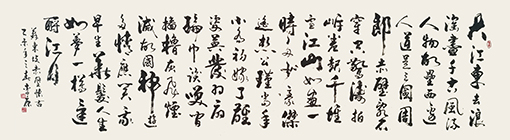 大江東去浪
淘盡千古風流
人物故壘西邊
人道是三國周
郎赤壁亂石
穿空驚濤拍
岸卷起千堆
雪江山如畫一
時多少豪傑
遙想公瑾當年
小喬初嫁了雄
姿英發羽扇
綸巾談笑間
檣櫓灰飛煙
滅故國神遊
多情應笑我
早生華髮人生
如夢一樽還
酹江月
蘇東坡赤壁懷古